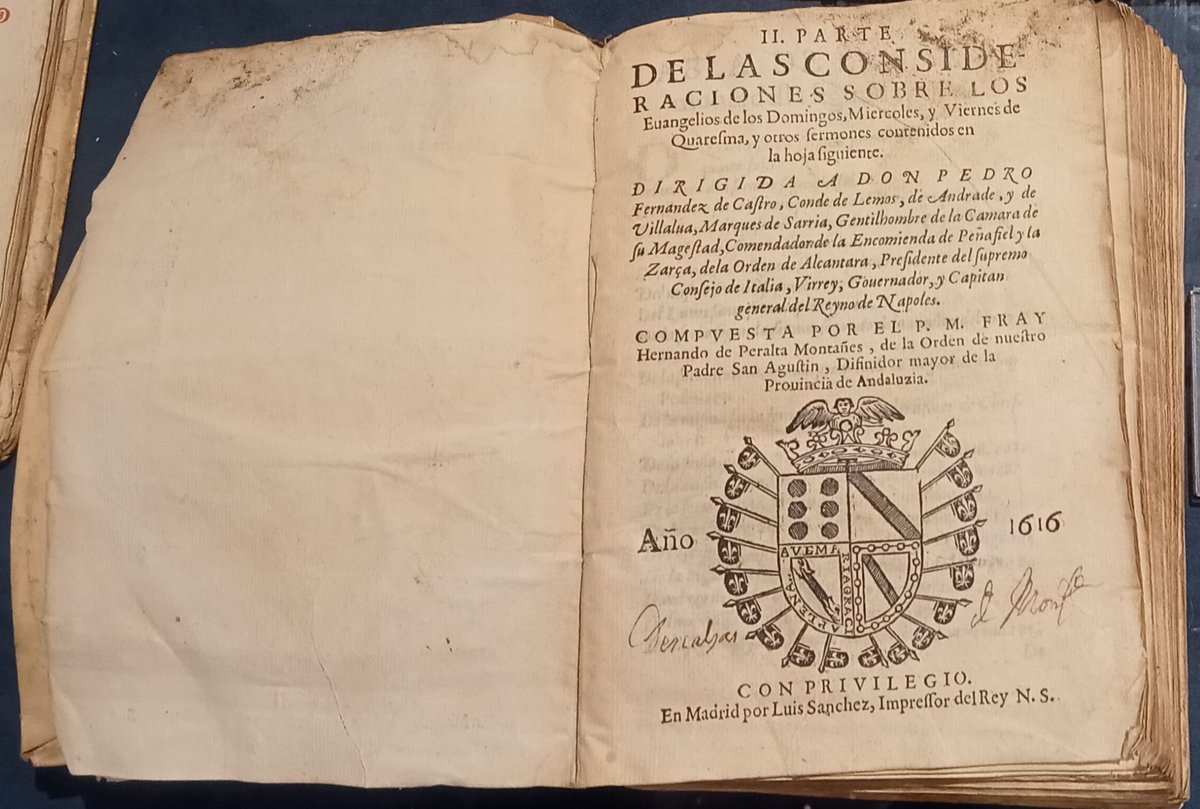 II. PARTE
DE LAS CONSIDE-
RACIONES SOBRE LOS
Euangelios de los Domingos, Miercoles, y Viernes de
Quaresma, y otros sermones contenidos en
la hoja siguiente.
DIRIGIDA A DON PEDRO
Fernandez de Castro, Conde de Lemos, de Andrade, y de
Villalua, Marques de Sarria, Gentilhombre de la Camara de
su Magestad, Comendador de la Encomienda de Peñafiel y la
Zarça, de la Orden de Alcantara, Presidente del supremo
Consejo de Italia, Virrey, Gouernador, y Capitan
general del Reyno de Napoles.
COMPVESTA POR EL P. M. FRAY
Hernando de Peralta Montañes, de la Orden de nuestro
Padre San Agustin, Difinidor mayor de la
Prouincia de Andaluzia.
Año 1616
AVEMA
RIAGRACI
APLENA
Descalsas
CON PRIVILEGIO.
En Madrid por Luis Sanchez, Impressor del Rey N. S.